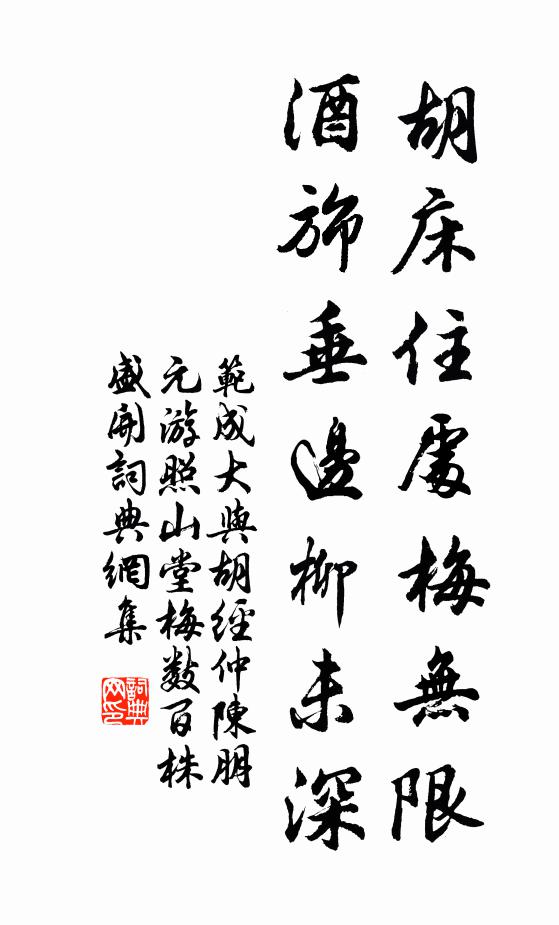 胡床住處梅無限
酒旆垂邊柳未深
範成大與胡經仲陳朋
元游照山堂梅數百株
盛開詞典網集
詞典
网印